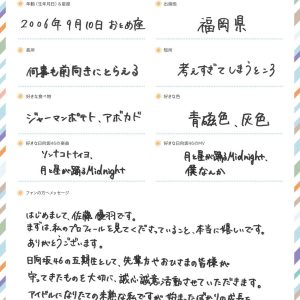 年齢(生年月日)&星座
出身地
2006年9月10日 おとめ座
福岡県
長所
短所
何事も前向きにとらえる
考えすぎてしまうところ
好きな食べ物
好きな色
ジャーマンポテト、アボカド
青磁色、灰色
好きな日向坂46の楽曲
好きな日向坂46のMV
ソンナコトナイヨ、
月と星が踊るMidnight
月と星が踊るMidnight、
僕なんか
ファンの方へメッセージ
はじめまして、佐藤優羽です。
まずは、私のプロフィールを見てくださっていること、本当に嬉しいです。
ありがとうございます。
日向坂46の五期生として、先輩方やおひさまの皆様が
守ってきたものを大切に、誠心誠意活動させていただきます。
アイドルになりたての未熟な私ですが